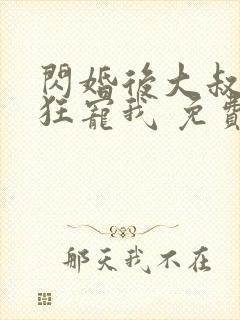 閃婚後大叔
狂寵我 免費
那天我不在